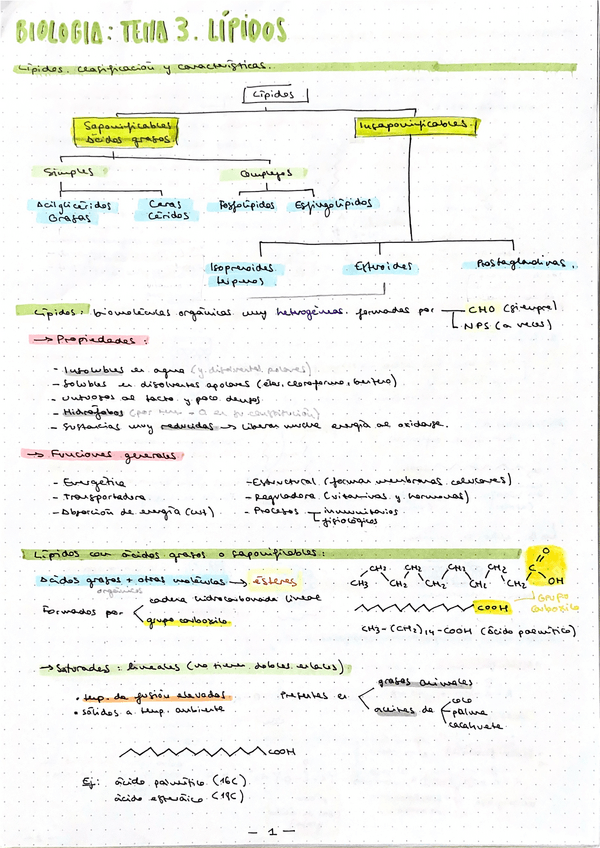 BIOLOGIA: TEMA 3. LÍPIDOS
Lípidos. Clasificación y características.
Lípidos
Saponificables
Ácidos grasos
Insaponificables.
Simples
Complejos
Acilglicéridos
Grasas
Ceras
Céridos
Fosfolípidos
Esfingolípidos
Isoprenoides
terpenos
Esteroides
Prostaglandinas.
Lípidos: biomoléculas orgánicas muy hetrogéneas. formadas por
CHO (siempre)
NPS (a veces)
→ Propiedades:
- Insolubles en agua (y disolventes polares)
- Solubles en disolventes apolares (éter, cloroformo, benceno)
- Untuosos al tacto y poco densos
- Hidrófobos (por en su constitución)
- Sustancias muy reducidas → liberan mucha energía al oxidarse.
→ Funciones generales
- Energética
- Transportadora
- Absorción de energía
- Estructural (forman membranas celulares)
- Reguladora (vitaminas y hormonas)
- Procesos
inmunitarios
fisiológicos
Lípidos con ácidos grasos o saponificables:
Ácidos grasos + otras moléculas → ésteres
orgánicos
Formados por
cadena hidrocarbonada lineal
grupo carboxilo
CH3 CH2 CH2 CH2 CH2 CH2 CH2 CH2 C O OH
COOH
Grupo
carboxilo
CH3-(CH2)14-COOH (ácido palmítico)
→ Saturados: lineales (no tienen dobles enlaces)
• temp. de fusión elevadas
• sólidos a temp. ambiente
Presentes en
grasas animales
aceites de
coco
palma
cacahuete
COOH
Ej: ácido palmítico (16C)
ácido esteárico (18C)
- 1 -